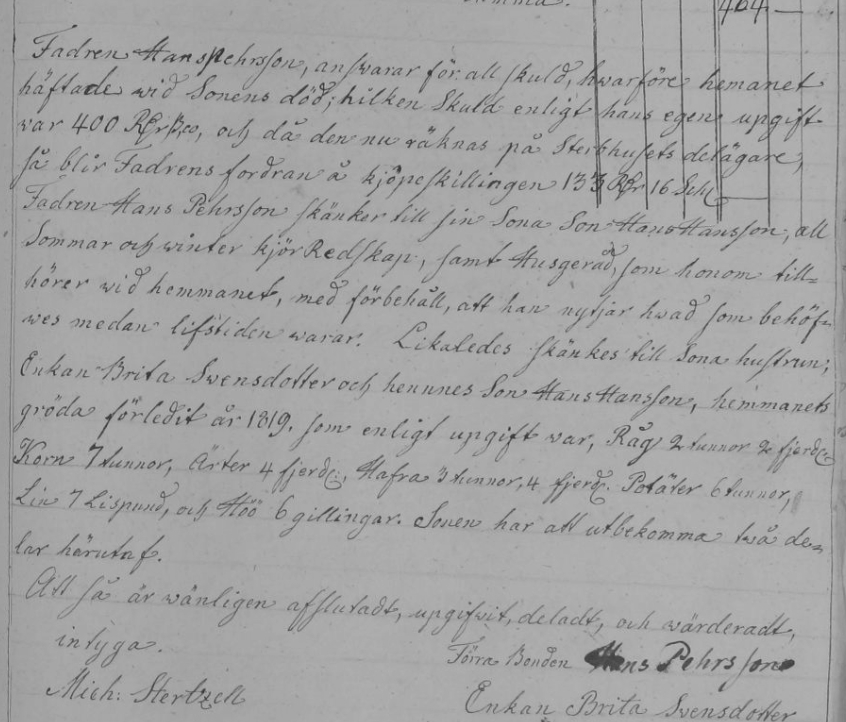 464 —
Fadren Hans Pehrsson, answarar för all skuld, hwarföre hemanet
häftade wid Sonens död; hilken Skuld enligt hans egen upgift
war 400 Rdr B:co, och då den nu räknas på Sterbhusets delägare,
så blir Fadrens fordran å kjöpeskillingen 133 Rdr 16 Sch —
Fadren Hans Pehrsson skänker till sin Sona Son Hans Hansson, all
Sommar och winter kjör Redskap, samt Husgeråd, som honom till=
hörer wid hemmanet, med förbehåll, att han nytjar hwad som behöf=
wes medan lifstiden warar. Likaledes skänkes till Sona hustrun;
Enkan Brita Swensdotter och hennnes Son Hans Hansson, hemmanets
gröda förledit år 1819. som enligt upgift war, Råg 2 tunnor 2 fjerd:
Korn 7 tunnor, Ärter 4 fjerd:, Hafra 3 tunnor, 4 fjerd: Potäter 6 tunnor,
Lin 7 Lispund, och Höö 6 gillingar. Sonen har att utbekomma twå de=
lar härutaf.
Att så är wänligen afslutadt, upgifwit, deladt, och wärderadt,
intyga.
Förra Bonden Hans Pehrsson
Mich: Stertzell
Enkan Brita Svensdotter